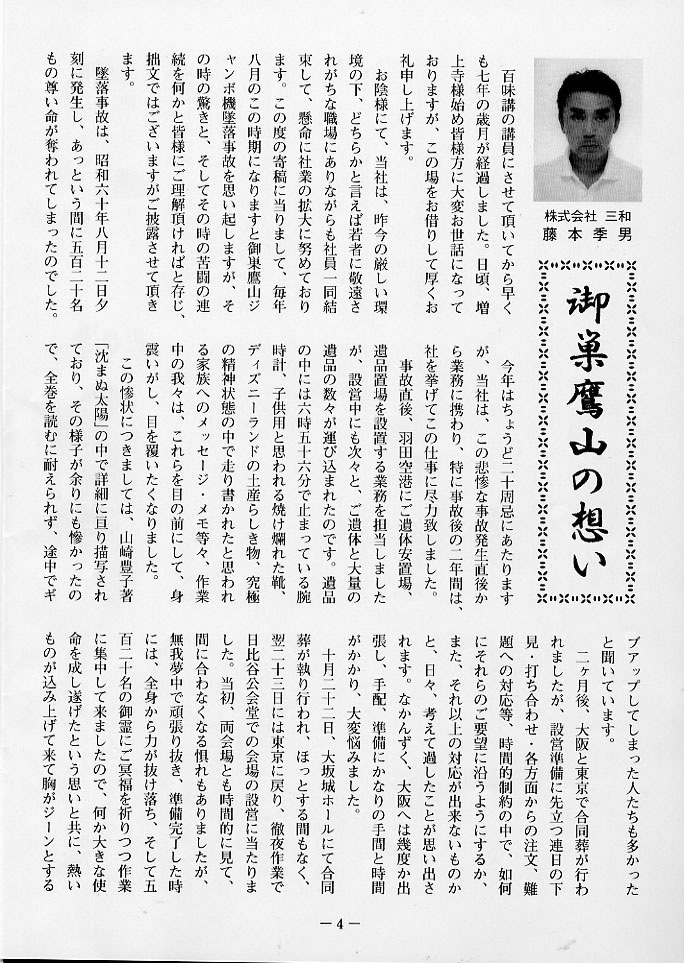 株式会社 三和
藤本季男
御巣鷹山の想い
百味講の講員にさせて頂いてから早く
も七年の歳月が経過しました。日頃、増
上寺様始め皆様方に大変お世話になって
おりますが、この場をお借りして厚くお
礼申し上げます。
お陰様にて、当社は、昨今の厳しい環
境の下、どちらかと言えば若者に敬遠さ
れがちな職場にありながらも社員一同結
束して、懸命に社業の拡大に努めており
ます。この度の寄稿に当りまして、毎年
八月のこの時期になりますと御巣鷹山ジ
ャンボ機墜落事故を思い起しますが、そ
の時の驚きと、そしてその時の苦闘の連
続を何かと皆様にご理解頂ければと存じ、
拙文ではございますがご披露させて頂き
ます。
墜落事故は、昭和六十年八月十二日夕
刻に発生し、あっという間に五百二十名
もの尊い命が奪われてしまったのでした。
今年はちょうど二十周忌にあたります
が、当社は、この悲惨な事故発生直後か
ら業務に携わり、特に事故後の二年間は、
社を挙げてこの仕事に尽力致しました。
事故直後、羽田空港にご遺体安置場、
遺品置場を設置する業務を担当しました
が、設営中にも次々と、ご遺体と大量の
遺品の数々が運び込まれたのです。遺品
の中には六時五十六分で止まっている腕
時計、子供用と思われる焼け爛れた靴、
ディズニーランドの土産らしき物、究極
の精神状態の中で走り書かれたと思われ
る家族へのメッセージ・メモ等々、作業
中の我々は、これらを目の前にして、身
震いがし、目を覆いたくなりました。
この惨状につきましては、山崎豊子著
「沈まぬ太陽」の中で詳細に亘り描写され
ており、その様子が余りにも惨かったの
で、全巻を読むに耐えられず、途中でギ
ブアップしてしまった人たちも多かった
と聞いています。
二ヶ月後、大阪と東京で合同葬が行わ
れましたが、設営準備に先立つ連日の下
見・打ち合わせ・各方面からの注文、難
題への対応等、時間的制約の中で、如何
にそれらのご要望に沿うようにするか、
また、それ以上の対応が出来ないものか
と、日々、考えて過したことが思い出さ
れます。なかんずく、大阪へは幾度か出
張し、手配、準備にかなりの手間と時間
がかかり、大変悩みました。
十月二十二日、大坂城ホールにて合同
葬が執り行われ、ほっとする間もなく、
翌二十三日には東京に戻り、徹夜作業で
日比谷公会堂での会場の設営に当たりま
した。当初、両会場とも時間的に見て、
間に合わなくなる惧れもありましたが、
無我夢中で頑張り抜き、準備完了した時
には、全身から力が抜け落ち、そして五
百二十名の御霊にご冥福を祈りつつ作業
に集中して来ましたので、何か大きな使
命を成し遂げたという思いと共に、熱い
ものが込み上げて来て胸がジーンとする
― 4 ―